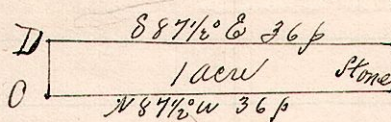 D S 87 1/2° E 36 p
1 acre Stone
C N 87 1/2° W 36 p